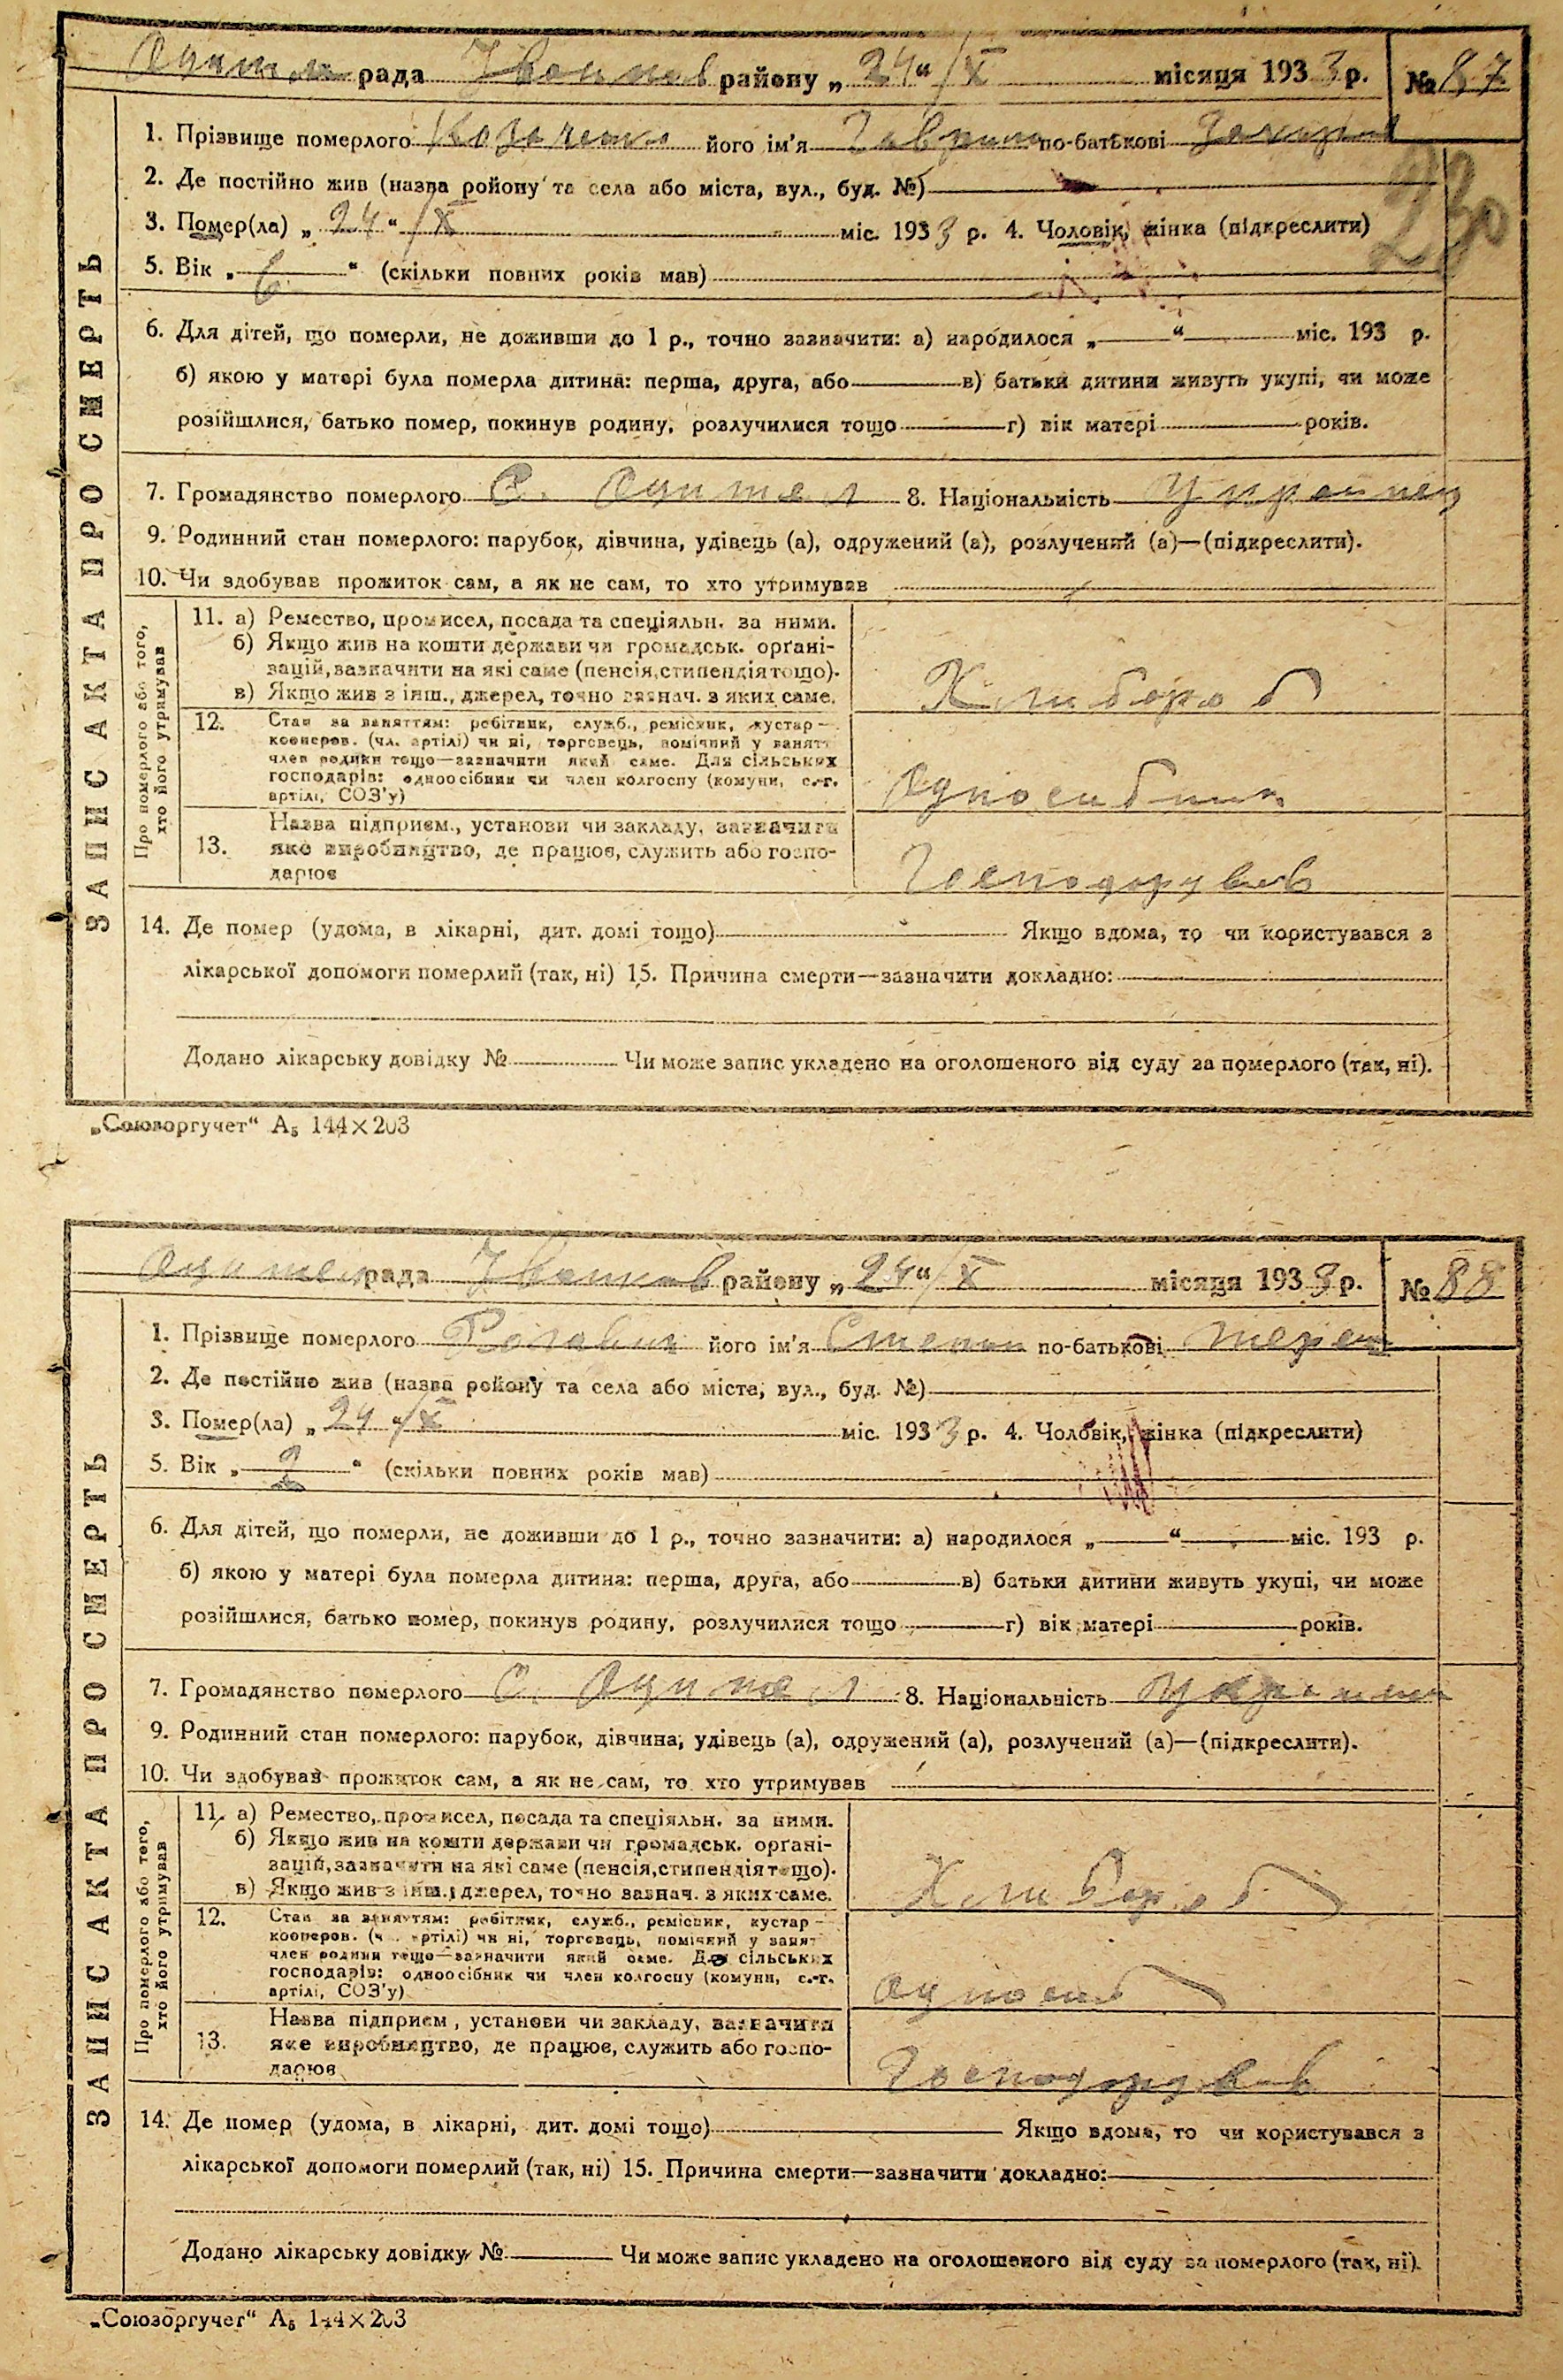 рада район у „ 24 “ / X місяця 1933 р. № 87
1. Прізвище померлого Козаченко його ім'я Гаврило по-батькові Захаров
2. Де постійно жив (назва району та села або міста, вул., буд. №)
3. Помер(ла) „ 24 “ / X міс. 1933 р. 4. Чоловік, жінка (підкреслити)
5. Вік „ 6 “ (скільки повних років мав)
230
6. Для дітей, що померли, не доживши до 1 р., точно зазначити: а) народилося „ “ міс. 193 р.
б) якою у матері була померла дитина: перша, друга, або в) батьки дитини живуть укупі, чи може
розійшлися, батько помер, покинув родину, розлучилися тощо г) вік матері років.
7. Громадянство померлого С. 8. Національність Українец
9. Родинний стан померлого: парубок, дівчина, удівець (а), одружений (а), розлучений (а)—(підкреслити).
10. Чи здобував прожиток сам, а як не сам, то хто утримував
ЗАПИС АКТА ПРО СМЕРТЬ
Про померлого або того,
хто його утримував
11. а) Ремество, промисел, посада та спеціяльн. за ними.
б) Якщо жив на кошти держави чи громадськ. органі-
зацій, зазначити на які саме (пенсія, стипендія тощо).
в) Якщо жив з інш., джерел, точно зазнач. з яких саме.
Хлибороб
12. Стан за заняттям: робітник, служб., ремісник, кустар —
кооперов. (чл. артілі) чи ні, торговець, помічний у занятт
член родини тощо—зазначити який саме. Для сільських
господарів: одноосібник чи член колгоспу (комуни, с.-г.
артілі, СОЗ'у)
Односибник
13. Назва підприєм., установи чи закладу, зазначити
яке виробництво, де працює, служить або госпо-
дарює
Господорував
14. Де помер (удома, в лікарні, дит. домі тощо) Якщо вдома, то чи користувався з
лікарської допомоги померлий (так, ні) 15. Причина смерти—зазначити докладно:
Додано лікарську довідку № Чи може запис укладено на оголошеного від суду за померлого (так, ні).
„Союзоргучет“ А₅ 144×203
рада району „ 24 “ / X місяця 1933 р. № 88
1. Прізвище померлого його ім'я Степан по-батькові Терен
2. Де постійно жив (назва району та села або міста, вул., буд. №)
3. Помер(ла) „ 24 “ / X міс. 1933 р. 4. Чоловік, жінка (підкреслити)
5. Вік „ “ (скільки повних років мав)
6. Для дітей, що померли, не доживши до 1 р., точно зазначити: а) народилося „ “ міс. 193 р.
б) якою у матері була померла дитина: перша, друга, або в) батьки дитини живуть укупі, чи може
розійшлися, батько помер, покинув родину, розлучилися тощо г) вік матері років.
7. Громадянство померлого С. 8. Національність
9. Родинний стан померлого: парубок, дівчина, удівець (а), одружений (а), розлучений (а)—(підкреслити).
10. Чи здобував прожиток сам, а як не сам, то хто утримував
ЗАПИС АКТА ПРО СМЕРТЬ
Про померлого або того,
хто його утримував
11. а) Ремество, промисел, посада та спеціяльн. за ними.
б) Якщо жив на кошти держави чи громадськ. органі-
зацій, зазначити на які саме (пенсія, стипендія тощо).
в) Якщо жив з інш., джерел, точно зазнач. з яких саме.
Хлибороб
12. Стан за заняттям: робітник, служб., ремісник, кустар —
кооперов. (ч. артілі) чи ні, торговець, помічний у занят
член родини тощо—зазначити який саме. Для сільських
господарів: одноосібник чи член колгоспу (комуни, с.-г.
артілі, СОЗ'у)
Односиб
13. Назва підприєм., установи чи закладу, зазначити
яке виробництво, де працює, служить або госпо-
дарює
Господорував
14. Де помер (удома, в лікарні, дит. домі тощо) Якщо вдома, то чи користувався з
лікарської допомоги померлий (так, ні) 15. Причина смерти—зазначити докладно:
Додано лікарську довідку № Чи може запис укладено на оголошеного від суду за померлого (так, ні).
„Союзоргучет“ А₅ 144×203